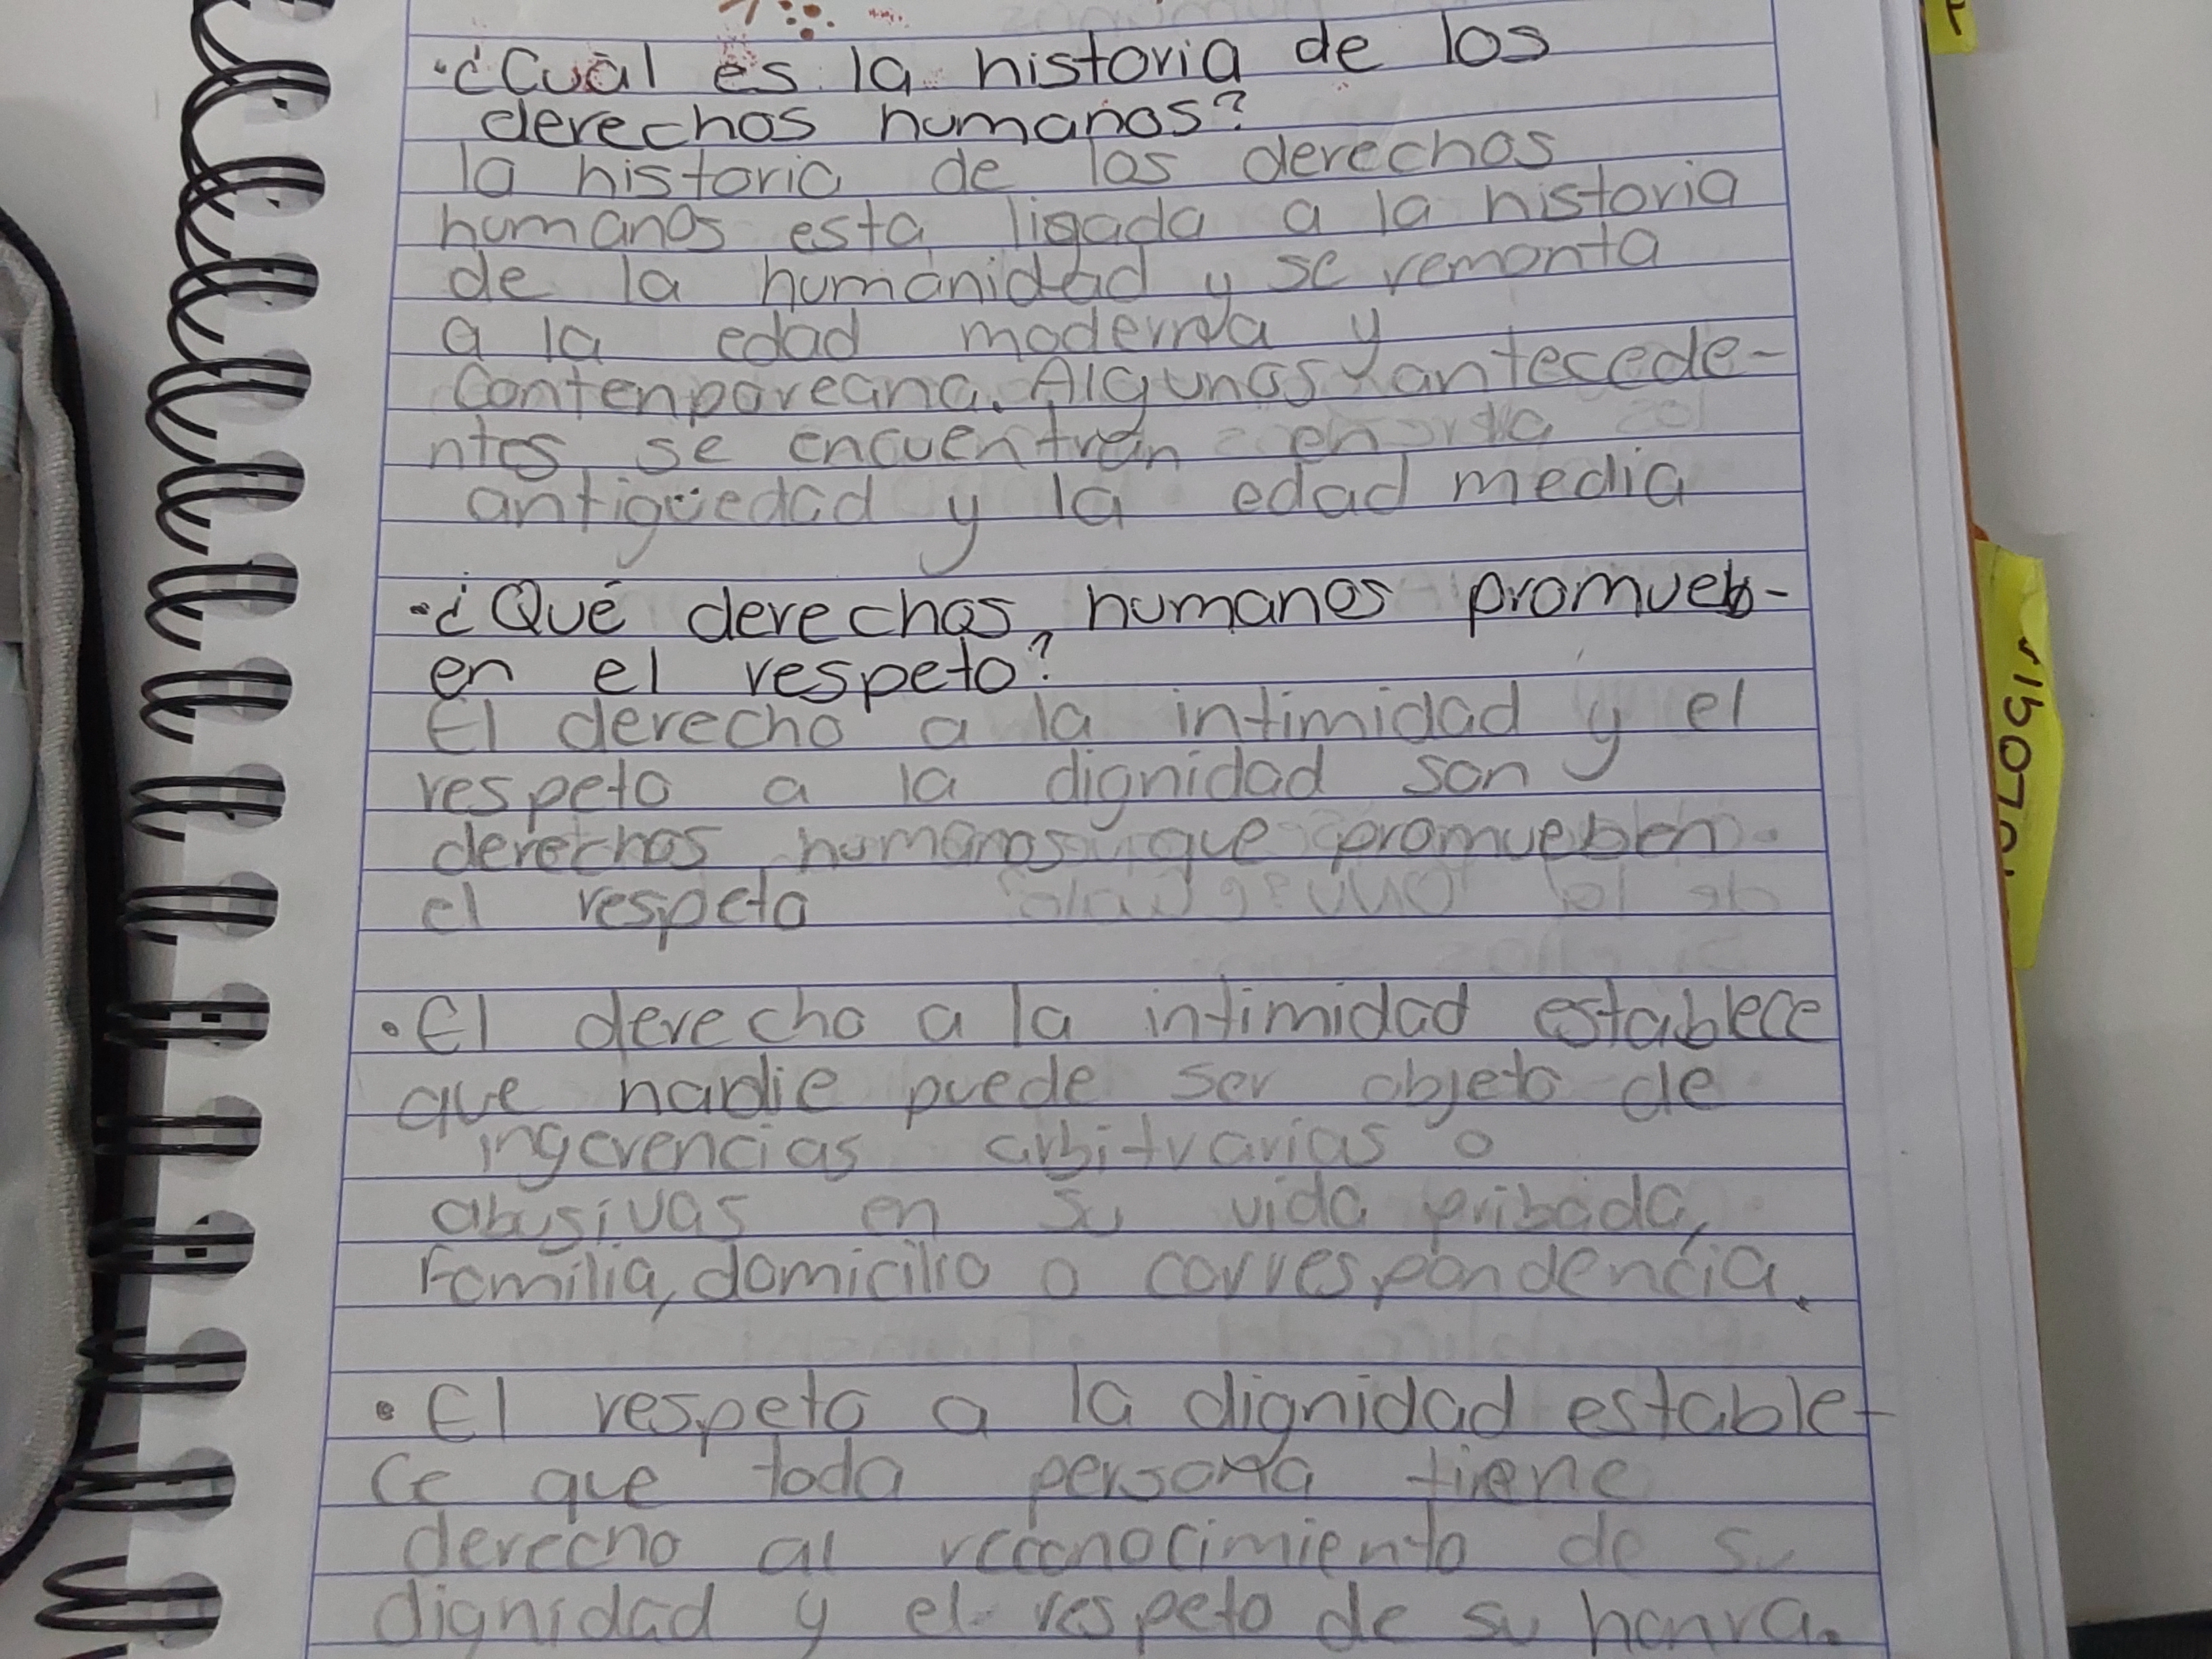 ·¿Cuál es la historia de los
derechos humanos?
la historia de los derechos
humanos esta ligada a la historia
de la humanidad y se remonta
a la edad moderna y
Contenporeana. Algunos antecede-
ntes se encuentran en la
antigüedad y la edad media
·¿Qué derechos humanos promueb-
en el respeto?
El derecho a la intimidad y el
respeto a la dignidad son
derechos humanos que promueben
el respeto
·El derecho a la intimidad establece
que nadie puede ser objeto de
ingerencias arbitrarias o
abusivas en su vida pribada,
Familia, domicilio o correspondencia.
·El respeto a la dignidad estable-
ce que toda persona tiene
derecho al reconocimiento de su
dignidad y el respeto de su honra.